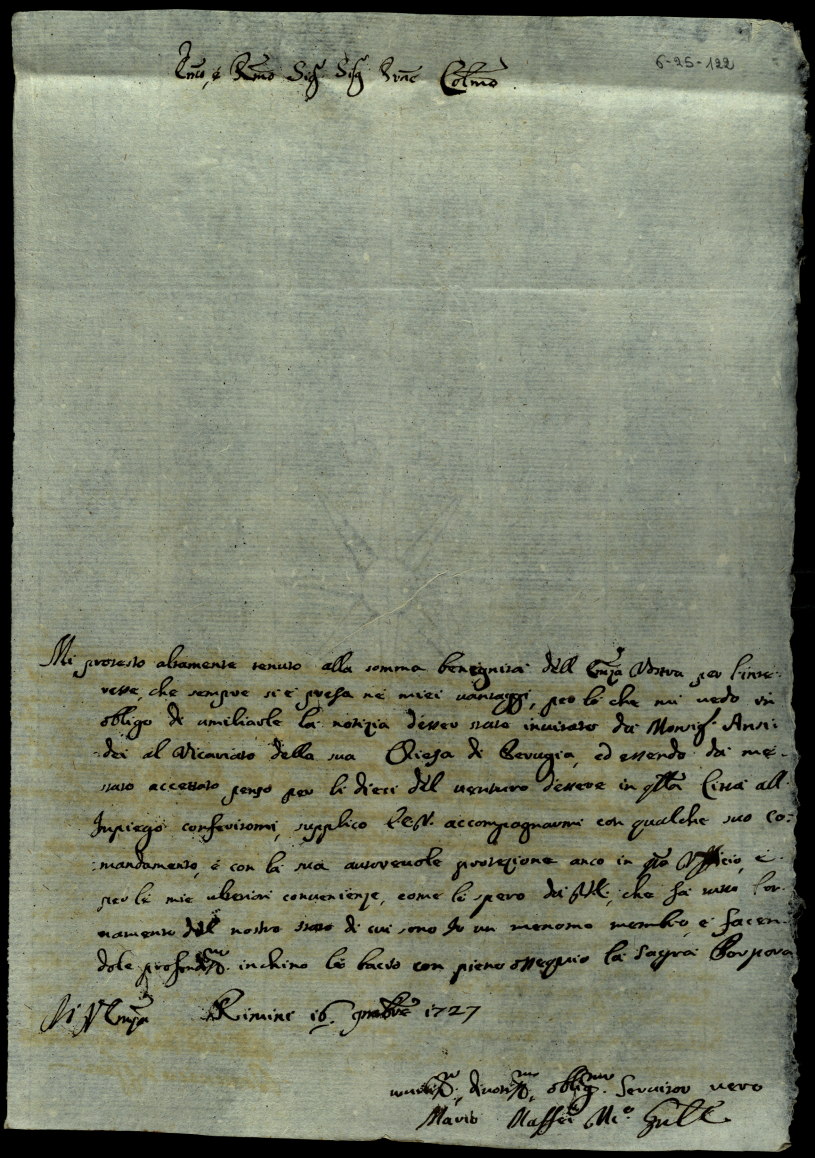 6-25-122
Emo, e Rmo Sigr Sigr Prne Colmo
Mi protesto altamente tenuto alla somma benignità dell Emza Vostra per l'inte-
resse, che sempre si è presa ne miei vantaggi, per lo che mi vedo in
obligo di umiliarle la notizia d'esser stato invitato da Monsigr Ansi-
dei al Vicariato della sua Chiesa di Perugia, ed essendo da me
stato accettato penso per li dieci del venturo d'essere in qta Città all
Impiego conferitomi, supplico l'E.V. accompagnarmi con qualche suo co-
mandamento, e con la sua autorevole protezione anco in qto Officio, e
per le mie ulteriori convenienze, come lo spero che fà tutto l'or-
namento del nostro stato di cui sono io un menomo membro, e facen-
dole profondmo inchino le bacio con pieno ossequio la Sagra Porpora
Di V. Emza Rimini 16 1727
umiliss. divotiss. obligmo Servitor vero
Mario Maffei